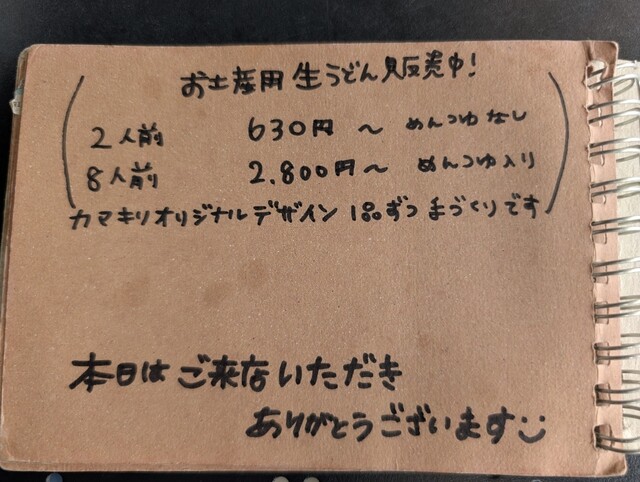 お土産用 生うどん販売中!
2人前 630円 〜 めんつゆなし
8人前 2,800円〜 めんつゆ入り
カマキリオリジナルデザイン 1品ずつ 手づくりです
本日は ご来店いただき
ありがとうございます